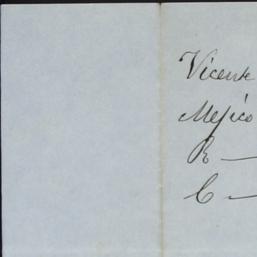 Vicente
Mejico
R —
C —